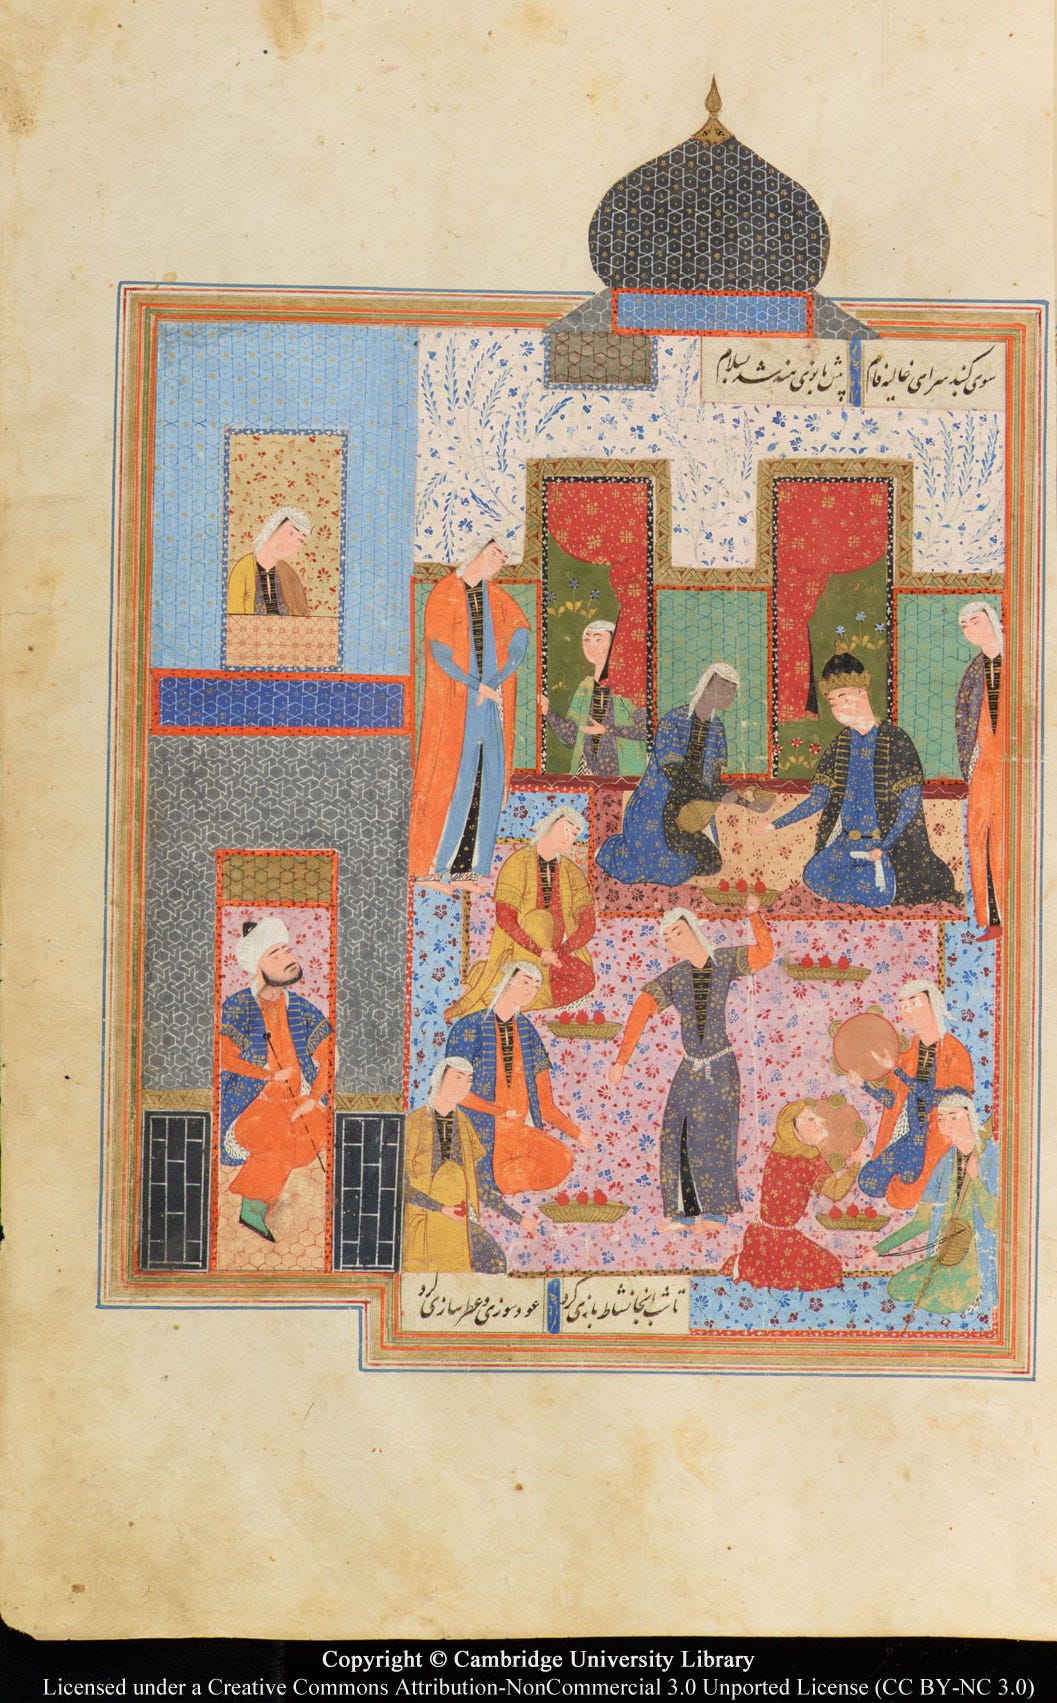 سوی گنبد سرای غالیه فام پیش بانوی هند شد بسلام
تا شب انجا نشاط و بازی کرد عود سوزی و عطر سازی کرد
Copyright © Cambridge University Library
Licensed under a Creative Commons Attribution-NonCommercial 3.0 Unported License (CC BY-NC 3.0)